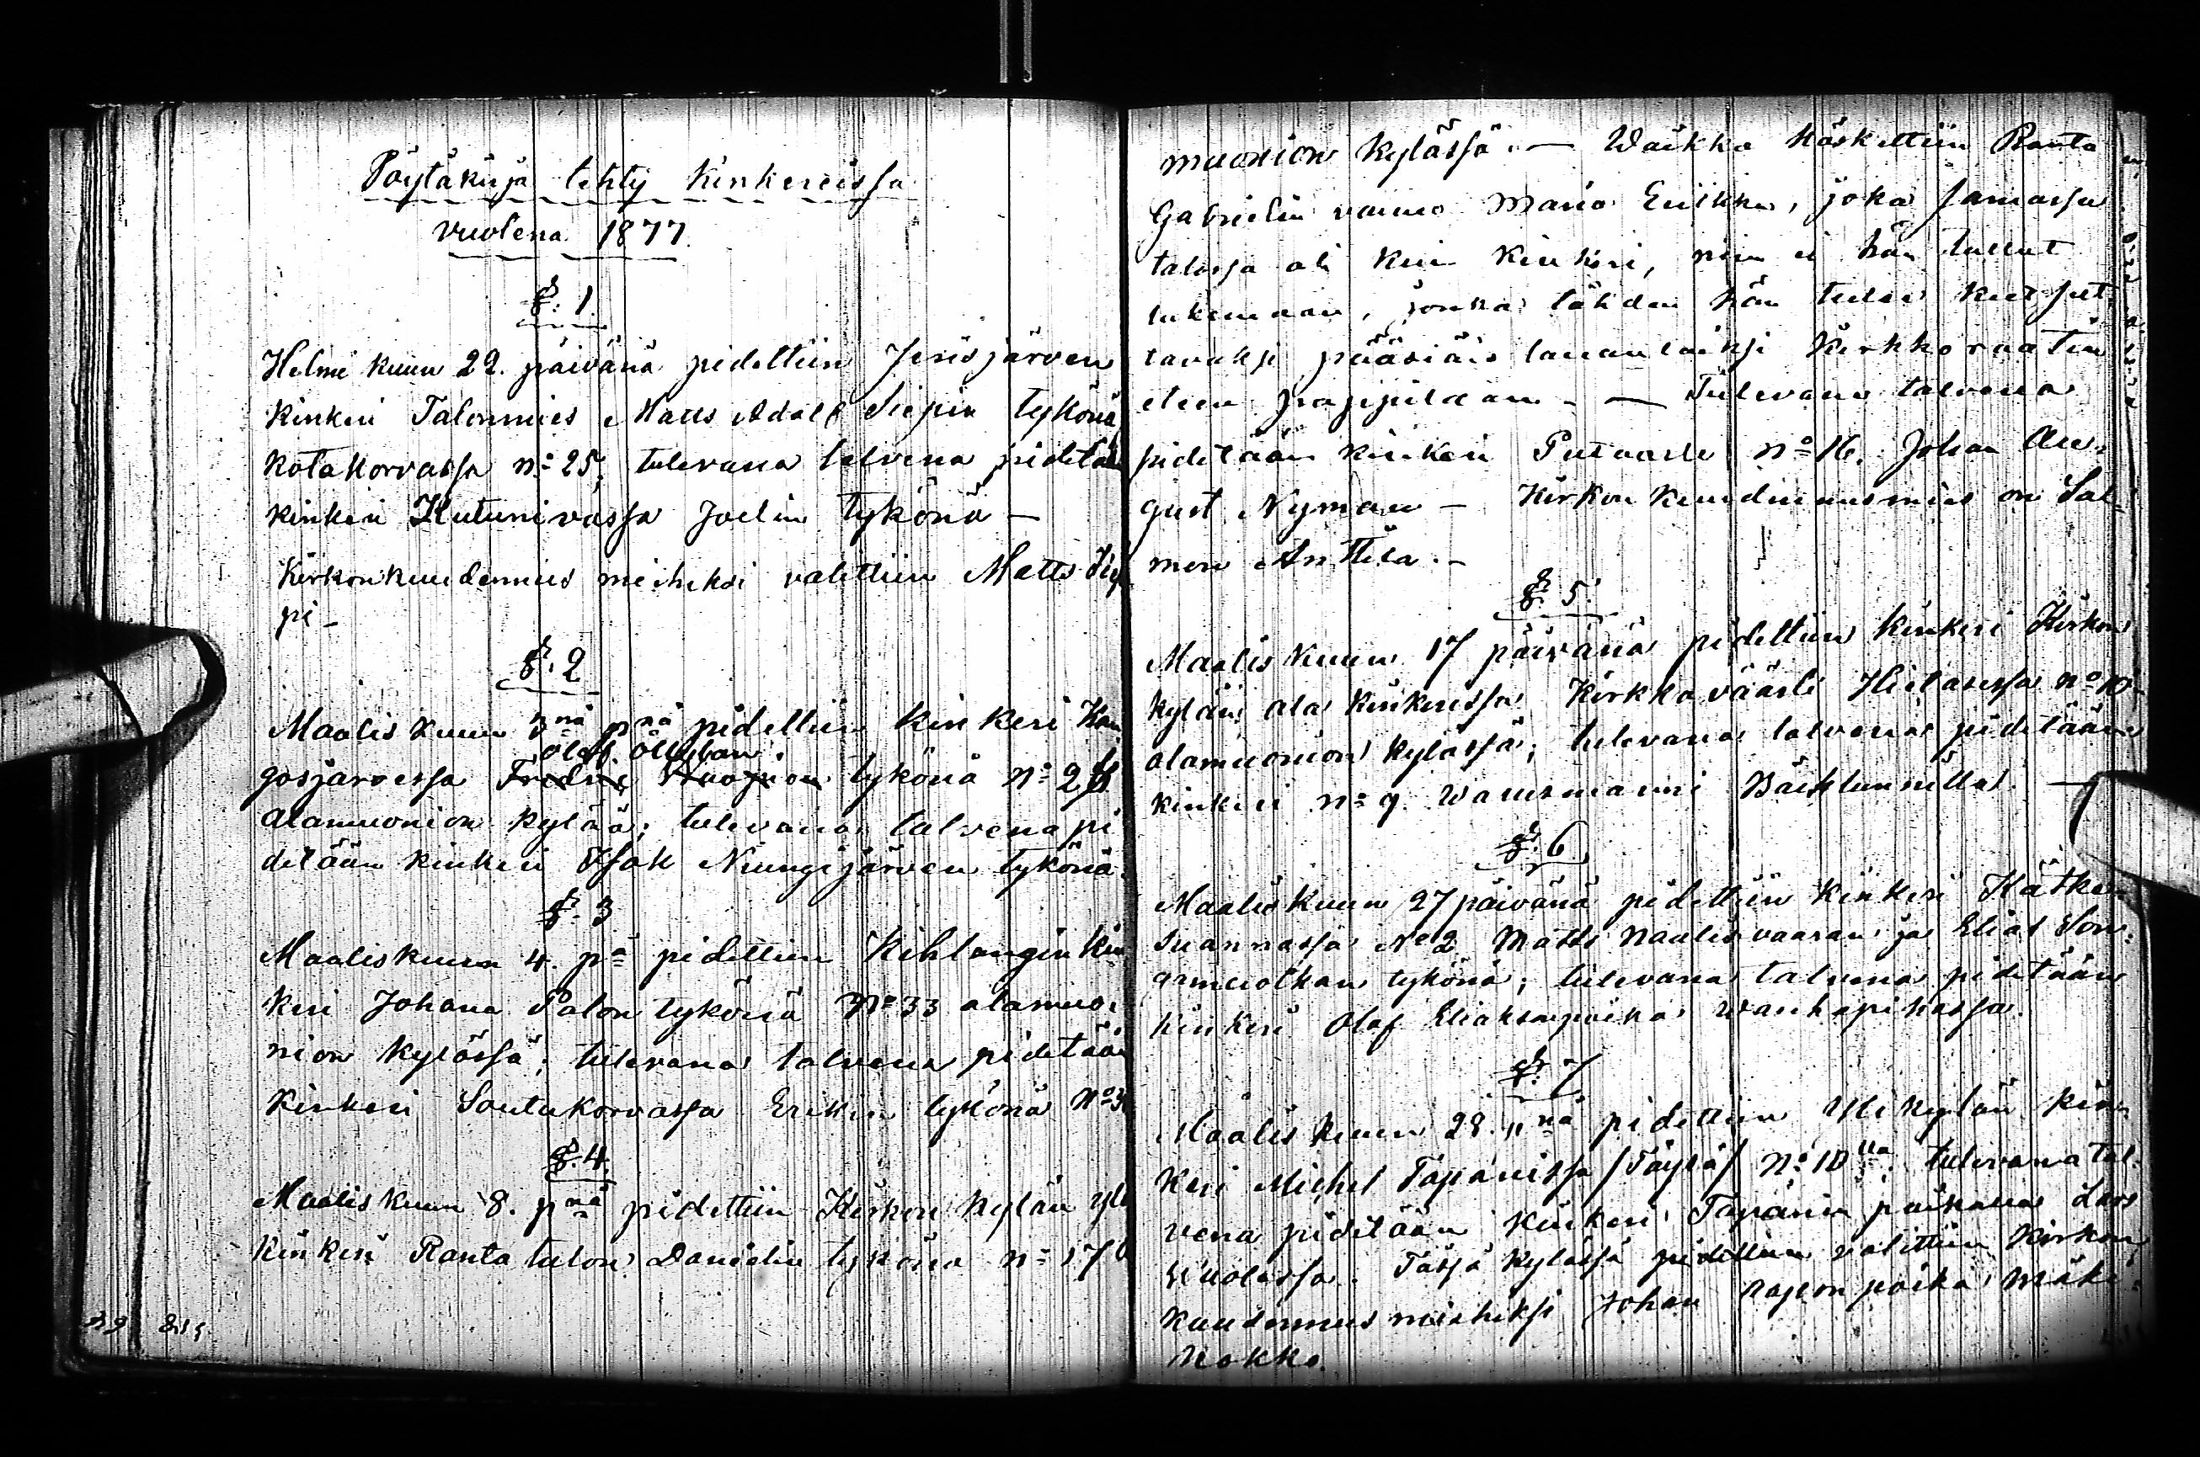 Pöytäkirja tehty kinkereissa
vuotena 1877.
§. 1.
Helmi kuun 22. päivänä pidettiin Jerisjärven
kinkeri Talonmies Matts Adolf Siepin tykönä
Kotakorvassa N:o 25; tulevana talvena pidetään
kinkeri Kutunivassa Joelin tykönä —
Kirkonkuudennus mieheksi valittiin Matts Sie
pi —
§. 2
Maalis kuun 3nä pnä pidettiin kinkeri Kan
Olof Ollitan
gosjärvessa tykönä N:o 2
Alamuonion kylää; tulevana talvena pi
detään kinkeri Isak Niungijärven tykönä.
§. 3
Maaliskuun 4. pä pidettiin Kihlangin kin
keri Johana Palon tykönä N:o 33 alamuo:
nion kylässä; tulevana talvena pidetään
kinkeri Soutukorvassa Erikin tykönä N:o 3
§. 4.
Maalis kuun 8. pnä pidettiin Kirkon kylän yli
kinkeri Ranta talon Danielin tykönä N:o 17
muonion kylässä. — Waikka käskettiin Ranta
Gabrielin vaimo Maria Erikka, joka samassa
talossa oli kuin kinkeri, niin ei hän tullut
lukemaan, jonka tähden hän tulee kut
tavaksi pääsiäis lauantaiksi Kirkkoraatin
eteen — — Tulevana talvena
pidetään kinkeri N:o 16. Johan Au:
gust Nyman — Kirkon kuudennusmies on Sal:
mon Anttila. —
§. 5.
Maalis kuun 17 päivänä pidettiin kinkeri Kirkon
kylän ala kinkerissa Kirkkoväärti Hietasessa N:o 10
alamuonion kylässä; tulevana talvena pidetään
kinkeri N:o 9. —
§. 6
Maalis kuun 27 päivänä pidettiin kinkeri Kätke
suannassa N:o 2 Matts Naalisvaaran ja Elias Son:
germuotkan tykönä; tulevana talvena pidetään
kinkeri Olof Eliaksenpoika Wanhapihassa.
§. 7
Maalis kuun 28. "nä pidettiin Yli kylän kin
keri Michel Tapanissa /Täysä/ N:o 10 tulevana tal
vena pidetään kinkeri Tapanin poikana Lars
Wuolassa. Tässä kylässä pidettiin valittiin Kirkon
kuudennus mieheksi Johan poika Mäki:
Nokko.